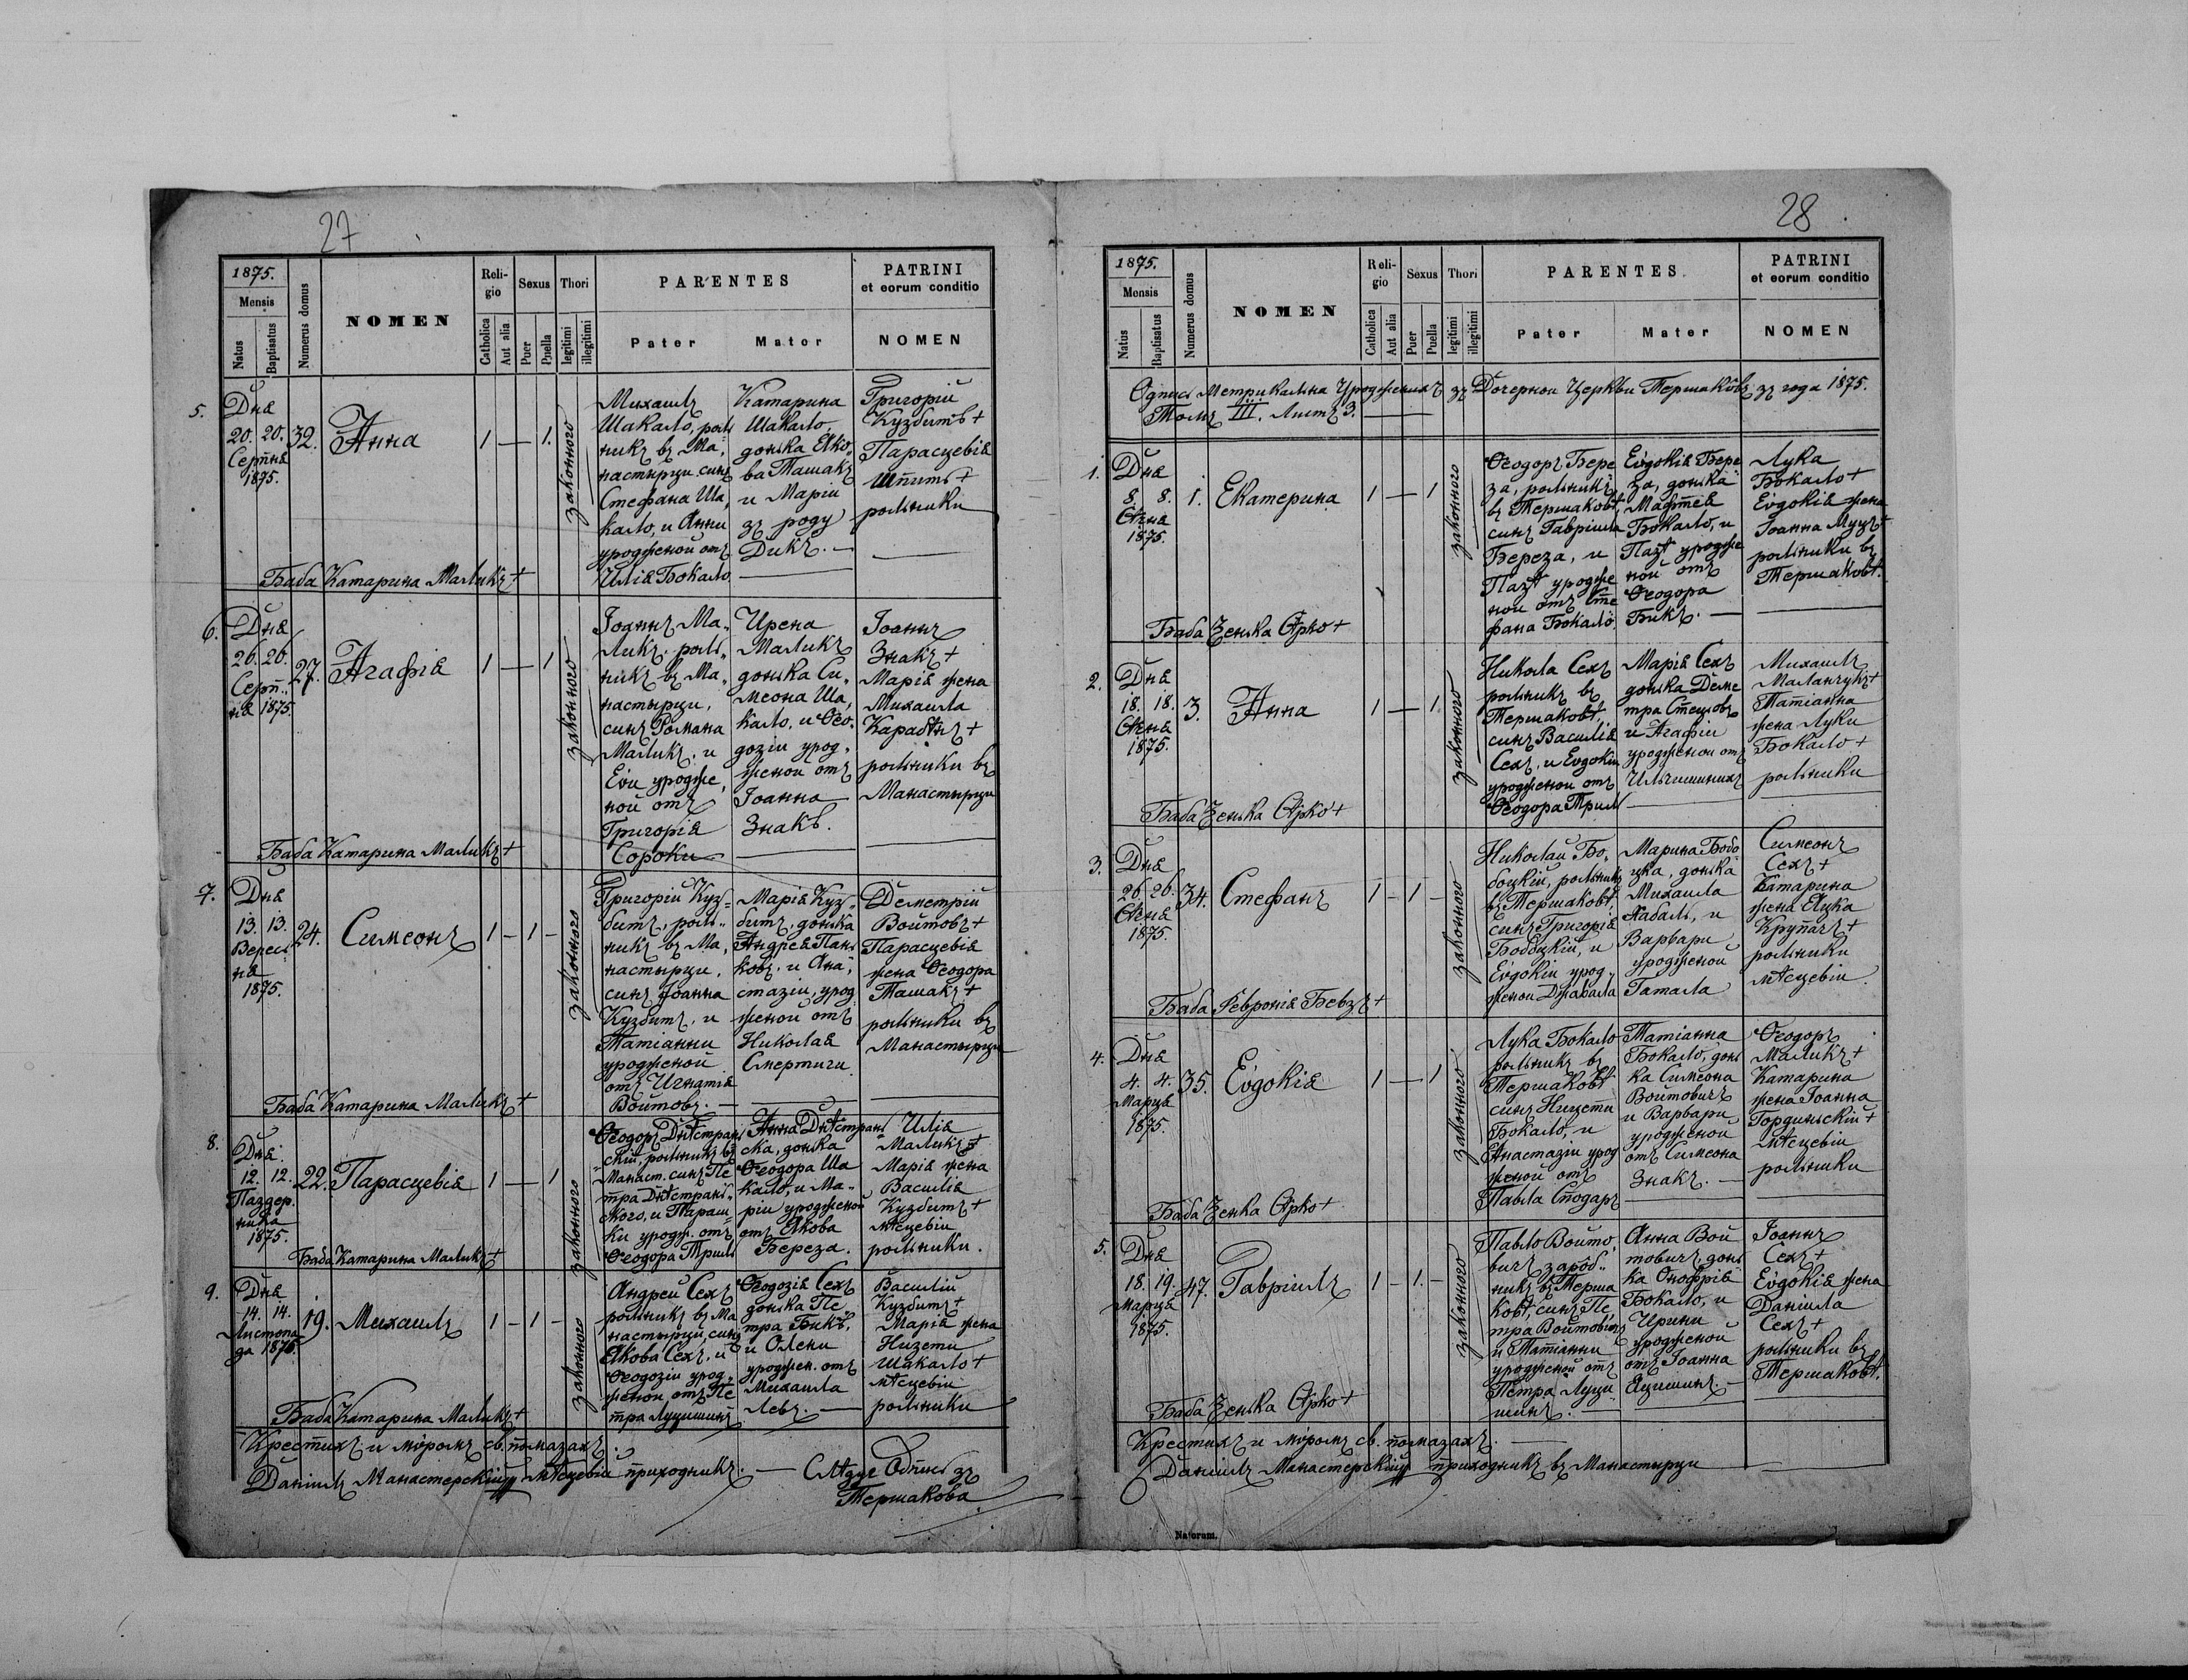 27
1875.
Mensis
Natus
Baptisatus
Numerus domus
NOMEN
Religio
Catholica
Aut alia
Sexus
Puer
Puella
Thori
legitimi
illegitimi
PARENTES
Pater
Mater
PATRINI
et eorum conditio
NOMEN
5.
Дня
20. 20.
Серпня
1875.
32.
Анна
1 — 1.
законного
Михаилъ
Шакало, роль
никъ въ Ма„
настырци синъ
Стефана Ша„
кало, и Анни
урожденой отъ
Илія Бокало
Катарина
Шакало,
донька Яко„
ва Ташакъ
и Маріи
зъ роду
Дикъ. —
Григорій
Кузбитъ +
Парасцевія
Шпитъ +
рольники
Баба Катарина Маликъ +
6.
Дня
26. 26.
Серп„
ня 1875.
27.
Агафія
1 — 1
законного
Іоаннъ Ма„
ликъ роль„
никъ въ Ма„
настырци,
синъ Романа
Маликъ, и
Еви урожде„
ной отъ
Григорія
Сороки
Ирена
Маликъ
донька Си„
меона Ша„
кало, и Ѳео„
дозіи урод„
женой отъ
Іоанна
Знакъ.
Іоаннъ
Знакъ +
Марія жена
Михаила
Карабѣнъ +
рольники въ
Манастырци
Баба Катарина Маликъ +
7.
Дня
13. 13.
Верес„
ня
1875.
24.
Симеонъ
1 — 1 —
законного
Григорій Куз„
битъ, роль„
никъ въ Ма„
настырци,
синъ Іоанна
Кузбитъ, и
Татіанни
урожденой
отъ Игнатія
Войтовъ. —
Марія Куз„
битъ, донька
Андрея Пань
ковъ, и Ана„
стазіи, урод
женой отъ
Николая
Смертиги
Деметрій
Войтовъ +
Парасцевія
жена Ѳеодора
Ташакъ +
рольники въ
Манастырци
Баба Катарина Маликъ +
8.
Дня
12. 12.
Паздер„
ника
1875.
22.
Парасцевія
1 — 1
законного
Ѳеодоръ Днѣстрянь
скій, рольникъ въ
Манаст. синъ Пе
тра Днѣстрянь„
ского, и Параш„
ки урожд. отъ
Ѳеодора Триль
Анна Днѣстрянь
ска, донька
Ѳеодора Ша
кало, и Ма„
ріи урожденой
отъ Якова
Береза.
Илія
Маликъ +
Марія жена
Василія
Кузбитъ +
мѣсцевіи
рольники.
Баба Катарина Маликъ +
9.
Дня
14. 14.
Листопа
да 1875.
19.
Михаилъ
1 — 1 —
законного
Андрей Сехъ
рольникъ въ Ма
настырци, синъ
Якова Сехъ, и
Ѳеодозіи урод„
женой отъ Пе
тра Луцишинъ
Ѳеодозія Сехъ
донька Пе„
тра Бикъ,
и Олени
урожден. отъ
Михаила
Левъ. —
Василій
Кузбитъ +
Марія жена
Низети
Шакало +
мѣсцевіи
рольники
Баба Катарина Маликъ +
Крестихъ и мѵромъ св. помазахъ.
Даніилъ Манастерскій мѣсцевій приходникъ. —
Слѣдує Одпись зъ
Тершакова
28
1875.
Mensis
Natus
Baptisatus
Numerus domus
NOMEN
Religio
Catholica
Aut alia
Sexus
Puer
Puella
Thori
legitimi
illegitimi
PARENTES
Pater
Mater
PATRINI
et eorum conditio
NOMEN
Одпись Метрикальна Урожденихъ зъ Дочернои Церкви Тершаковъ зъ года 1875.
Томъ III. Листъ 3.
1.
Дня
8. 8.
Січня
1875.
1.
Екатерина
1 — 1
законного
Ѳеодоръ Бере
за, рольникъ
въ Тершаковѣ,
синъ Гавріила
Береза, и
Пазѣ урожде
ной отъ Сте
фана Бокало.
Евдокія Бере
за, донька
Мафтея
Бокало, и
Пазѣ урожде
ной отъ
Ѳеодора
Бикъ. —
Лука
Бокало +
Евдокія жена
Іоанна Муцъ +
рольники въ
Тершаковѣ.
Баба Зенька Ярко +
2.
Дня
18. 18.
Січня
1875.
3.
Анна
1 — 1
законного
Никола Сехъ
рольникъ въ
Тершаковѣ,
синъ Василія
Сехъ, и Евдокіи
урожденой отъ
Ѳеодора Триль
Марія Сехъ
донька Деме
тра Стецовъ
и Агафіи
урожденой отъ
Ильчишинихъ
Михаилъ
Маланчукъ +
Татіанна
жена Луки
Бокало +
рольники
Баба Зенька Ярко +
3.
Дня
26. 26.
Січня
1875.
34.
Стефанъ
1 — 1 —
законного
Николай Бо„
боцкій, рольникъ
въ Тершаковѣ,
синъ Григорія
Бобоцкій, и
Евдокіи урод„
женои Джабала
Марина Бобо
цка, донька
Михаила
Хабаль, и
Варвари
урожденой
Гатала
Симеонъ
Сехъ +
Катарина
жена Яцка
Крупачъ +
рольники
мѣсцевіи.
Баба Февронія Бевзъ +
4.
Дня
4. 4.
Марця
1875.
35.
Евдокія
1 — 1
законного
Лука Бокало
рольникъ въ
Тершаковѣ
синъ Низети
Бокало, и
Анастазіи урод
женой отъ
Павла Сподаръ
Татіанна
Бокало, донь
ка Симеона
Войтовичъ
и Варвари
урожденой
отъ Симеона
Знакъ. —
Ѳеодоръ
Маликъ +
Катарина
жена Іоанна
Гординьскій +
мѣсцевіи
рольники
Баба Зенка Ярко +
5.
Дня
18. 19.
марця
1875.
47.
Гавріилъ
1 — 1. —
законного
Павло Войто„
вичъ заробʼ„
никъ въ Терша
ковѣ, синъ Пе„
тра Войтовичъ
и Татіанни
урожденой отъ
Петра Луци
шинъ. —
Анна Вой
товичъ донь
ка Онофрія
Бокало, и
Ирини
урожденой
отъ Іоанна
Яцишинъ. —
Іоаннъ
Сехъ +
Евдокія жена
Даніила
Сехъ +
рольники въ
Тершаковѣ.
Баба Зенька Ярко +
Крестихъ и мѵромъ св. помазахъ.
Даніилъ Манастерскій приходникъ въ Манастырци
Natorum.